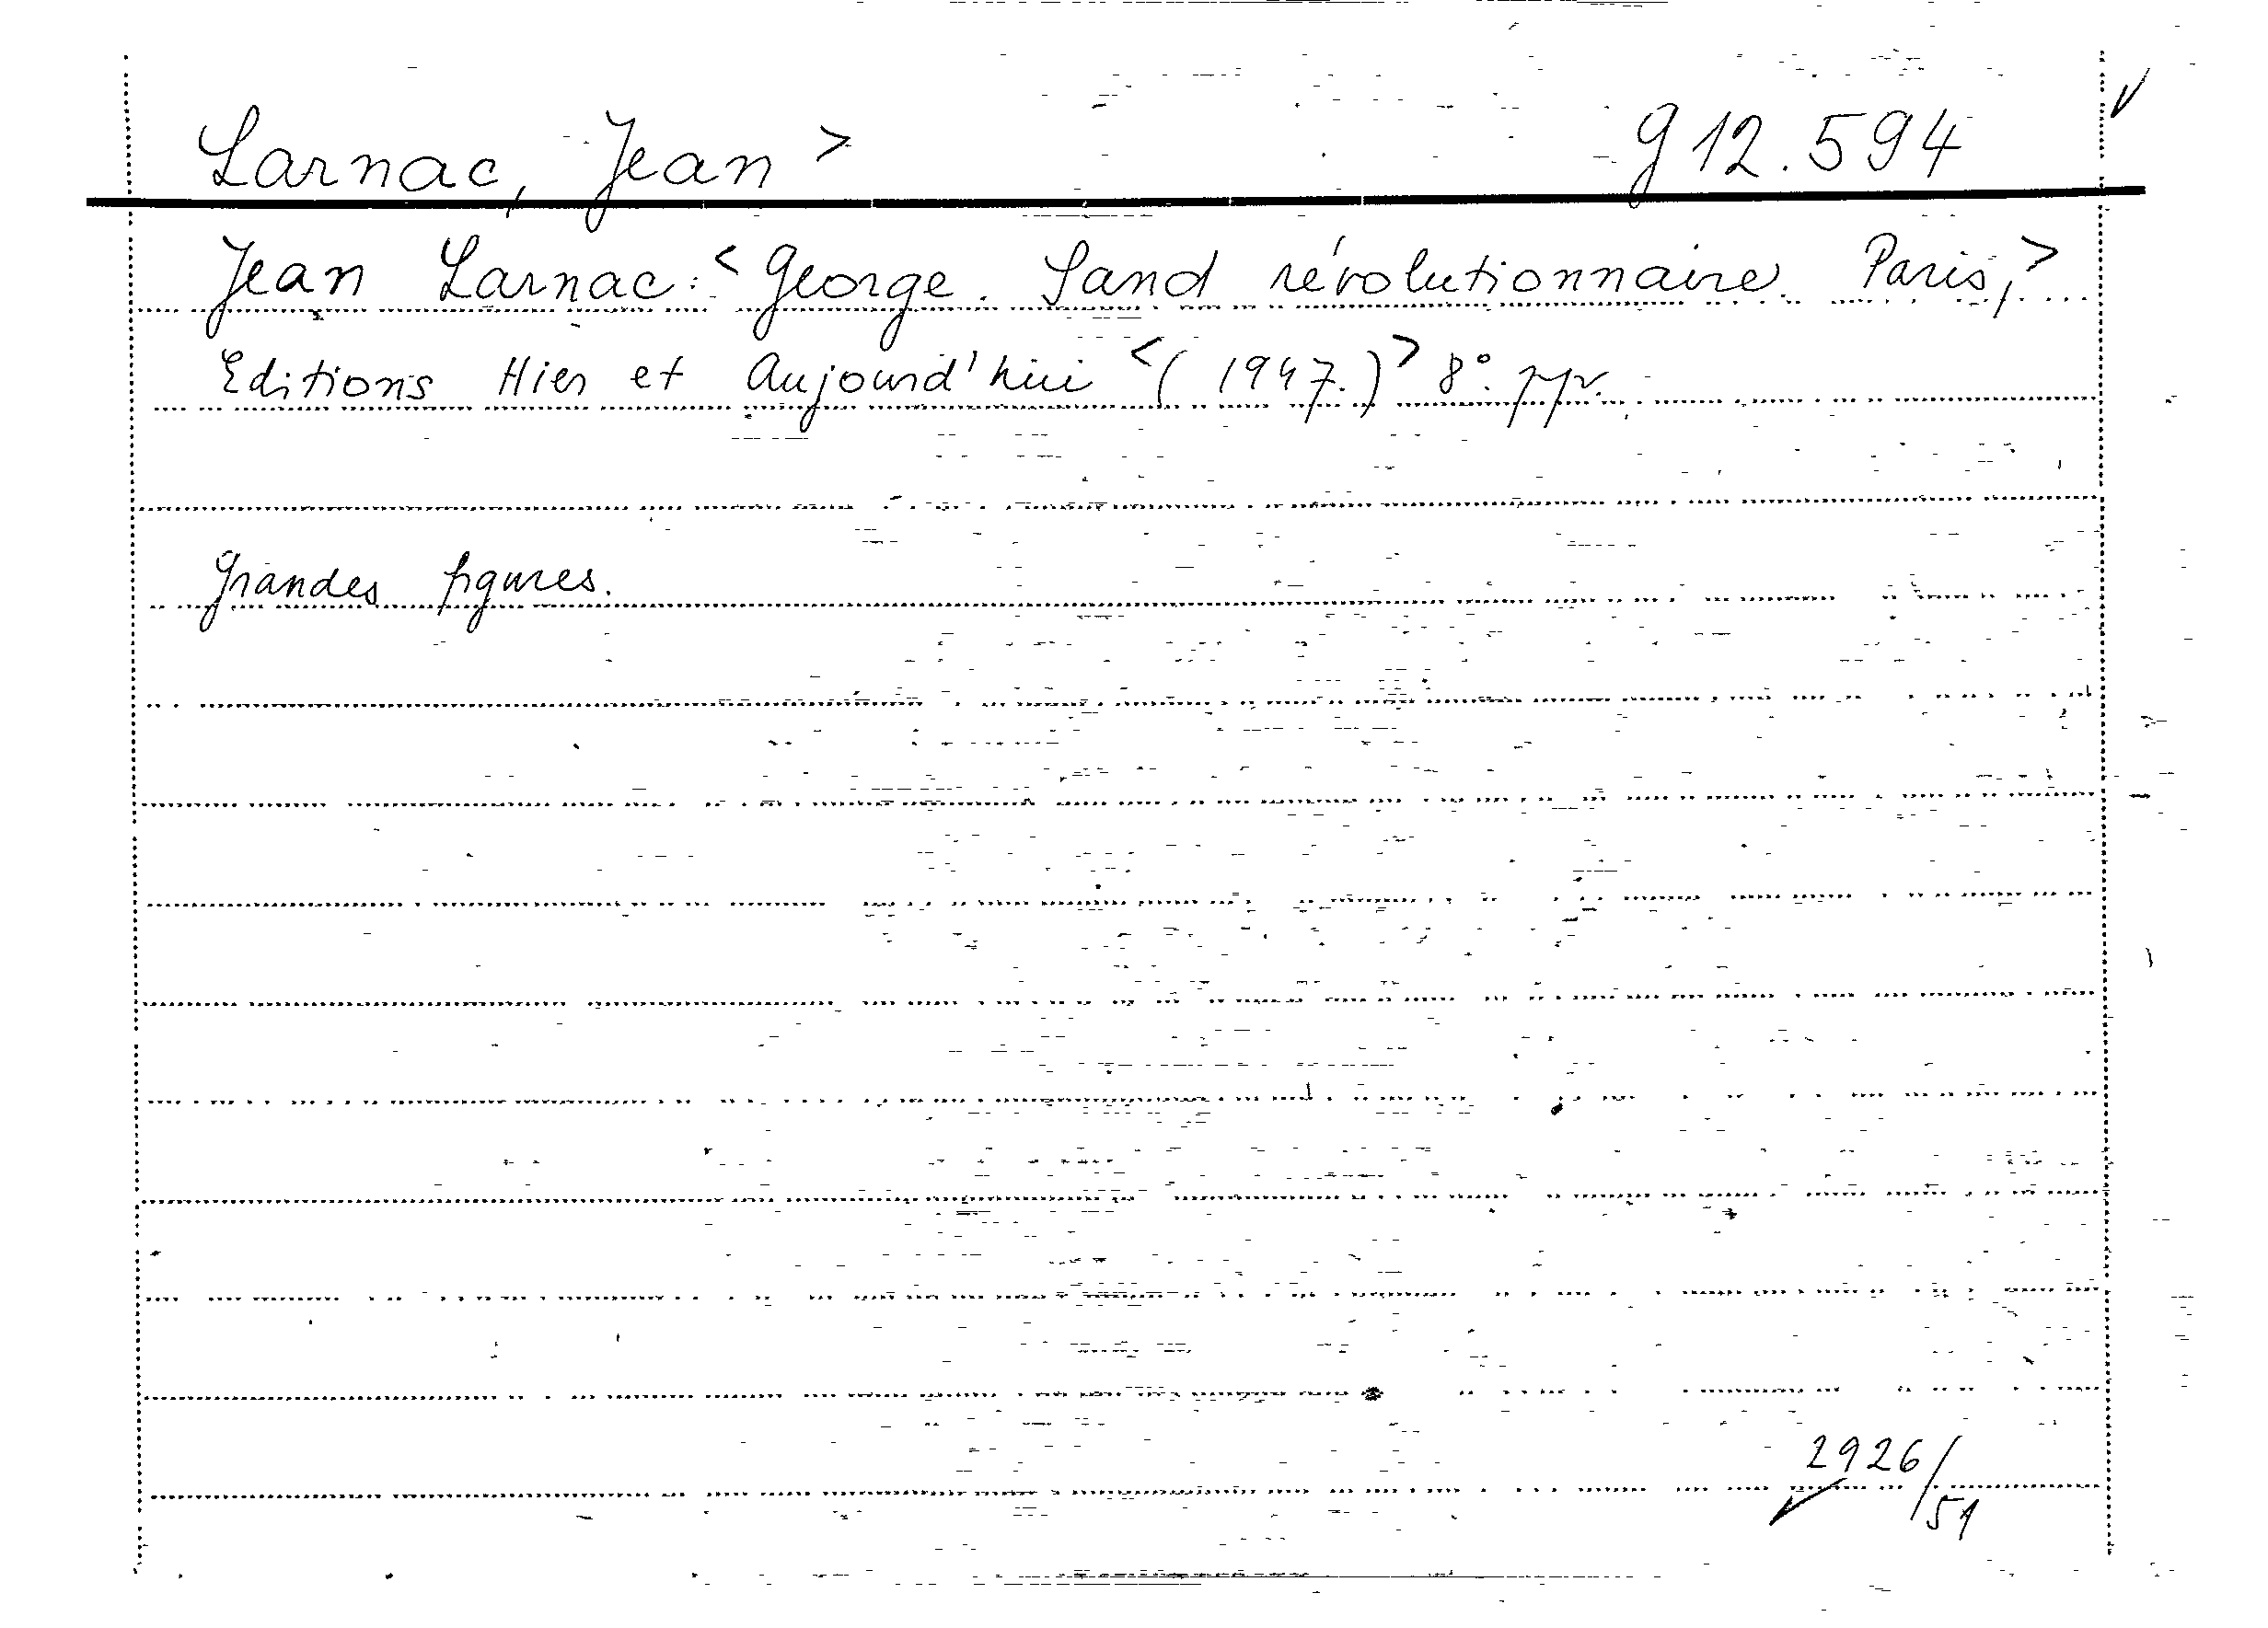 Larnac, Jean > g 12.594
Jean Larnac: < George Sand révolutionnaire. Paris, >
Editions Hier et Aujourd'hui < (1947.) > 8°.
Grandes figures.
2926/51